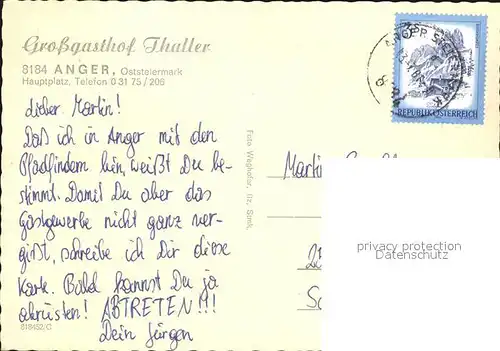 Großgasthof Thaller
8184 ANGER, Oststeiermark
Hauptplatz, Telefon 0 31 75 / 206
lieber Martin!
Daß ich in Anger mit den
Pfadfindern bin, weißt Du be-
stimmt. Damit Du aber das
Gastgewerbe nicht ganz ver-
gißt, schreibe ich Dir diese
Karte. Bald kannst Du ja
abrüsten! ABTRETEN!!!
Dein Jürgen
818452/C
Foto Waghofer, Ilz, Stmk.
REPUBLIK ÖSTERREICH
Martin
privacy protection
Datenschutz